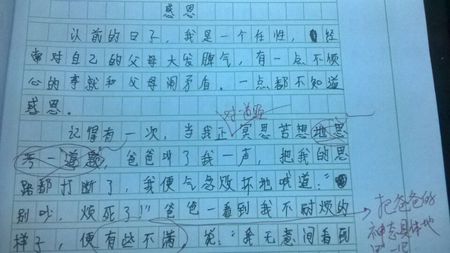 感恩
以前的日子，我是一个任性，经
常对自己的父母大发脾气，有一点不顺
心的事就和父母闹矛盾。一点都不知道
感恩。
对道题
记得有一次，当我正冥思苦想地思
考一道题，爸爸叫了我一声，把我的思
路都打断了，我便气急败坏地喊道："
别吵，烦死了！"爸爸一看到我不耐烦的
样子，便有些不满，说："我无意间看到
把爸爸的
神态具体地
写一写